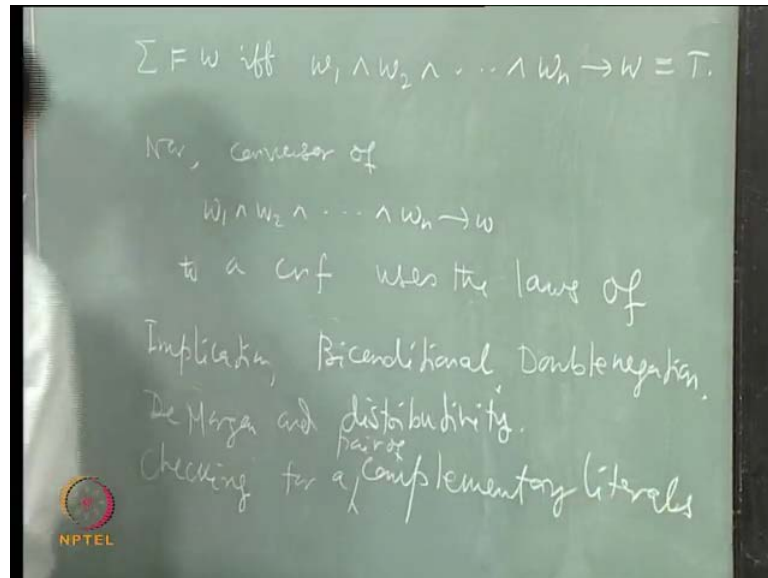 Σ ⊨ w iff w₁ ∧ w₂ ∧ · · · ∧ wₙ → w ≡ T.
Now, conversion of
w₁ ∧ w₂ ∧ · · · ∧ wₙ → w
to a cnf uses the laws of
Implication, Biconditional, Double negation.
De Morgan and distributivity.
Checking for a pair of complementary literals
NPTEL